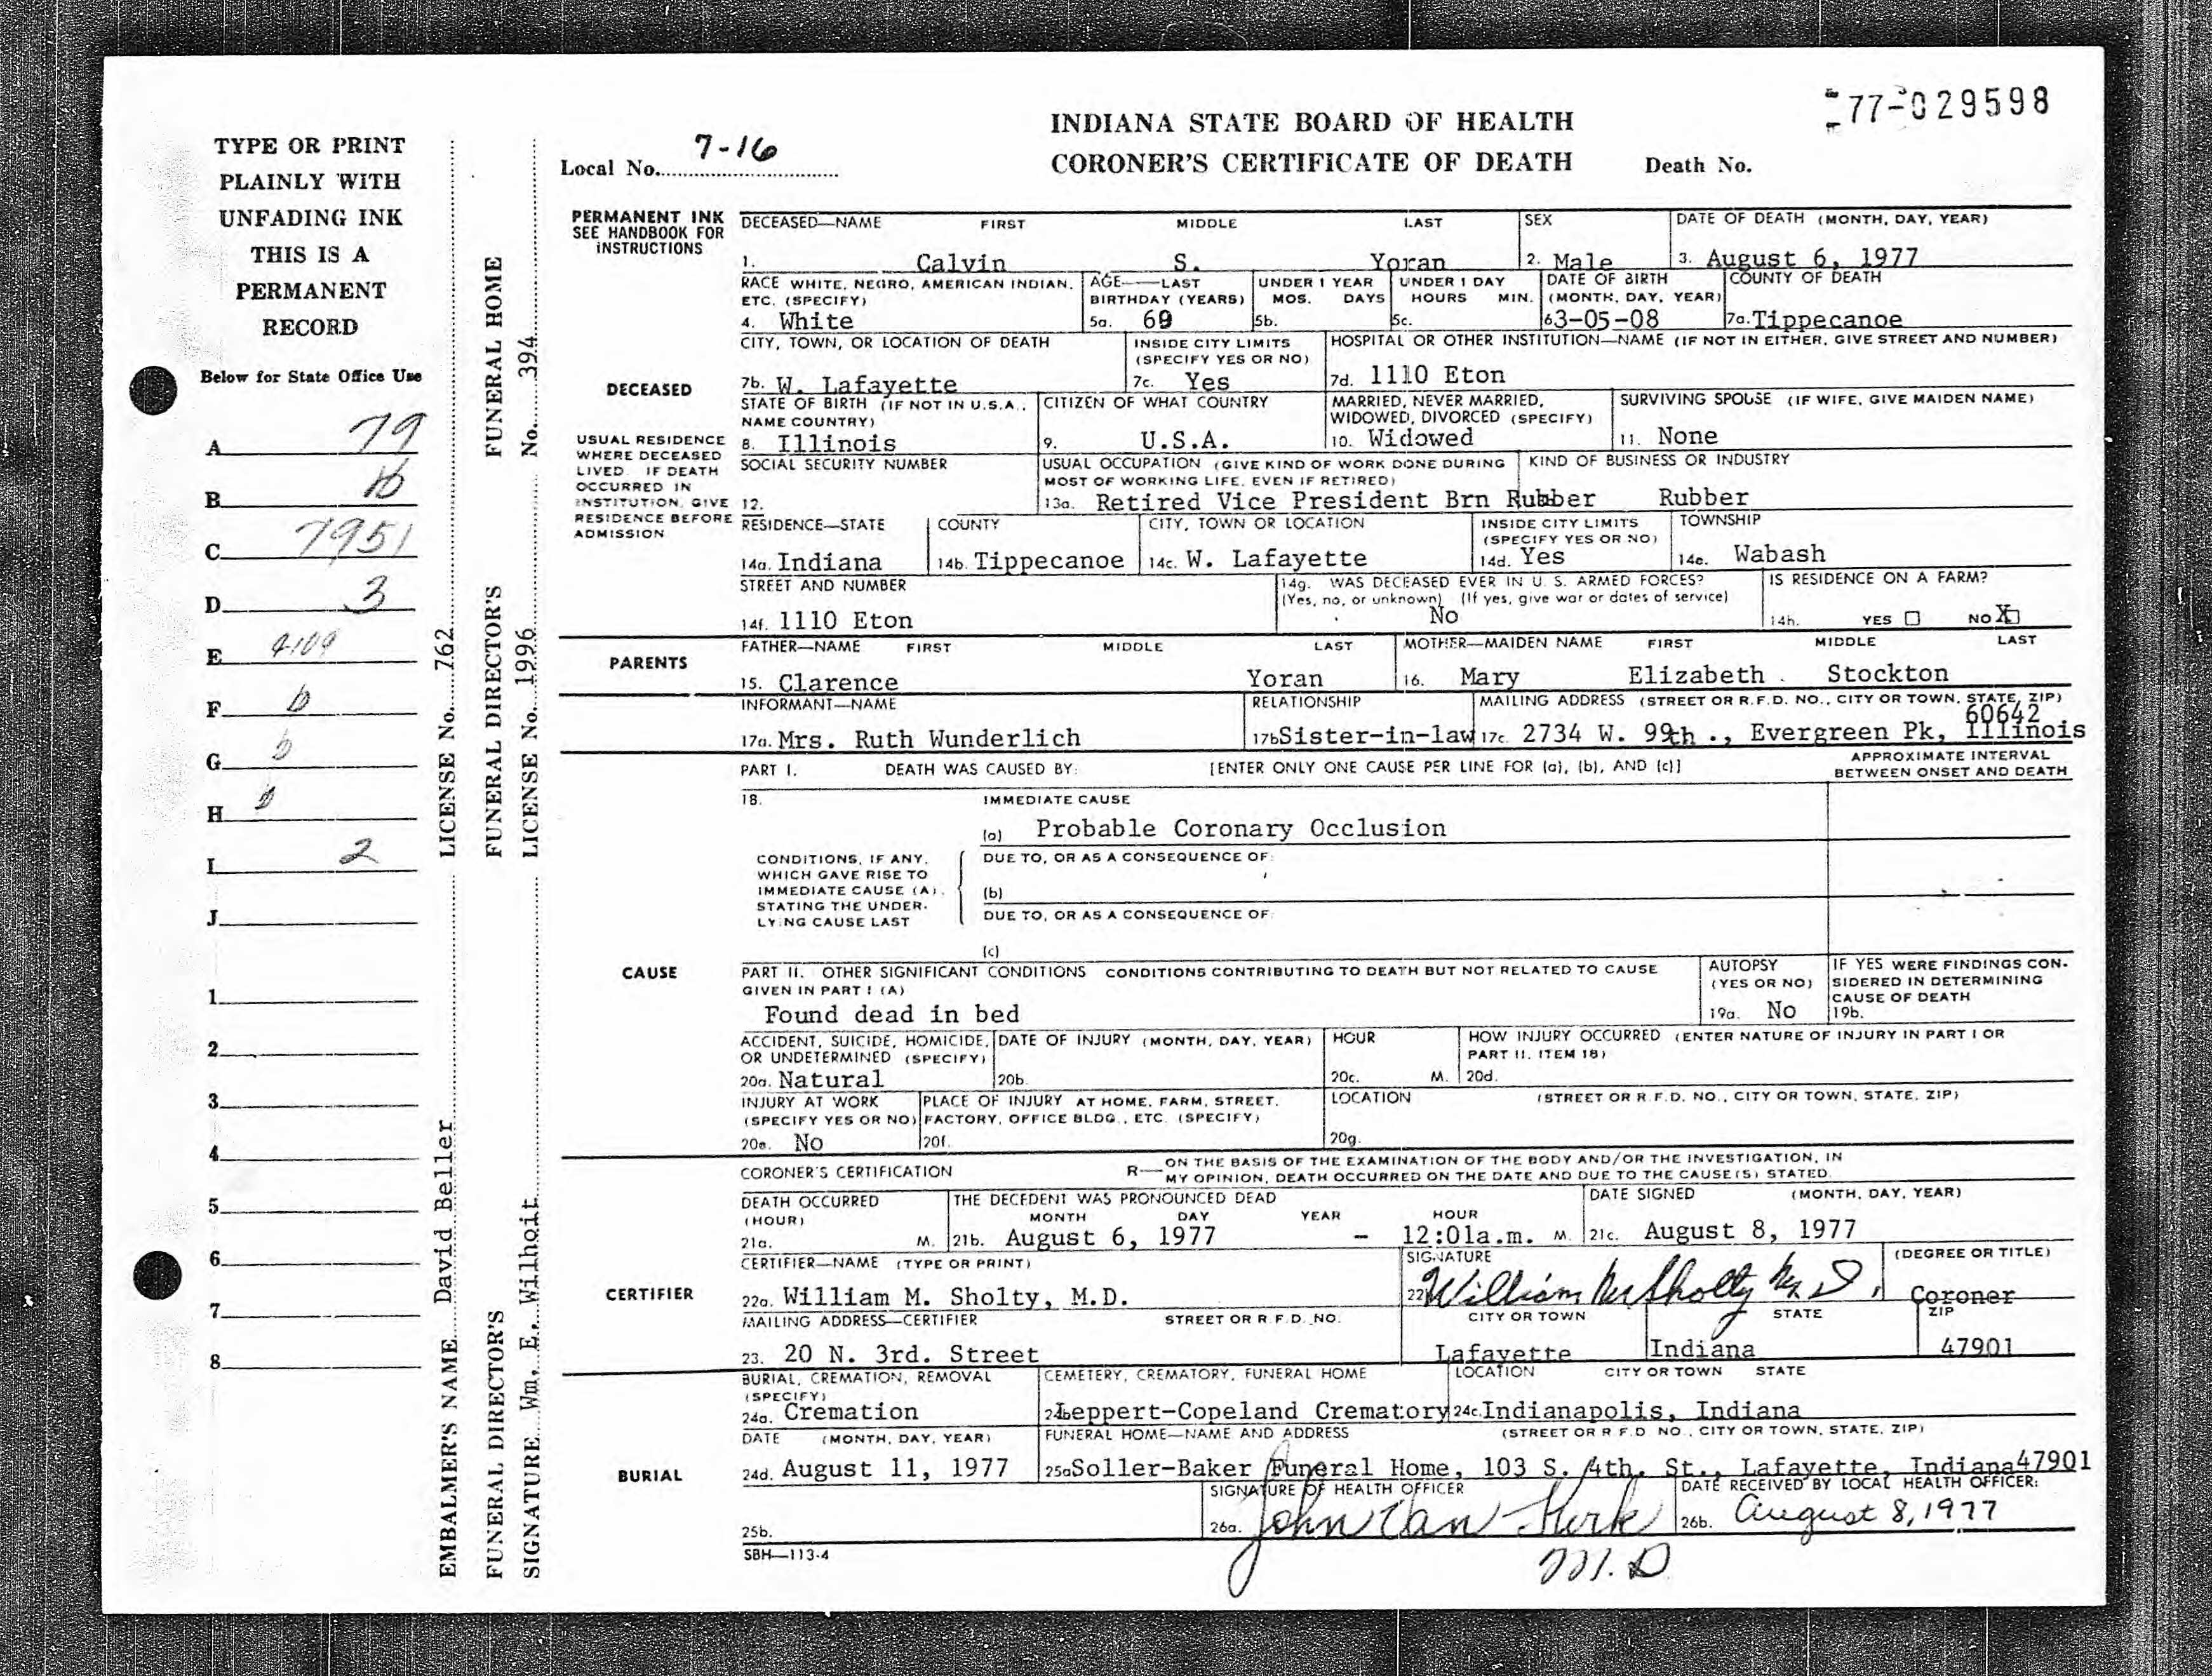 77-029598
INDIANA STATE BOARD OF HEALTH
CORONER'S CERTIFICATE OF DEATH
Local No. 7-16
Death No.
TYPE OR PRINT
PLAINLY WITH
UNFADING INK
THIS IS A
PERMANENT
RECORD
Below for State Office Use
A 79
B
C 7951
D 3
E
F
G
H
I 2
J
1
2
3
4
5
6
7
8
EMBALMER'S NAME David Beller LICENSE No. 762
FUNERAL DIRECTOR'S FUNERAL DIRECTOR'S FUNERAL HOME
SIGNATURE Wm. E. Wilhoit LICENSE No. 1996 No. 394
PERMANENT INK
SEE HANDBOOK FOR
INSTRUCTIONS
DECEASED
USUAL RESIDENCE
WHERE DECEASED
LIVED. IF DEATH
OCCURRED IN
INSTITUTION, GIVE
RESIDENCE BEFORE
ADMISSION
DECEASED—NAME FIRST MIDDLE LAST SEX DATE OF DEATH (MONTH, DAY, YEAR)
1. Calvin S. Yoran 2. Male 3. August 6, 1977
RACE WHITE, NEGRO, AMERICAN INDIAN, AGE—LAST UNDER 1 YEAR UNDER 1 DAY DATE OF BIRTH COUNTY OF DEATH
ETC. (SPECIFY) BIRTHDAY (YEARS) MOS. DAYS HOURS MIN. (MONTH, DAY, YEAR)
4. White 5a. 69 5b. 5c. 6 3-05-08 7a. Tippecanoe
CITY, TOWN, OR LOCATION OF DEATH INSIDE CITY LIMITS HOSPITAL OR OTHER INSTITUTION—NAME (IF NOT IN EITHER, GIVE STREET AND NUMBER)
(SPECIFY YES OR NO)
7b. W. Lafayette 7c. Yes 7d. 1110 Eton
STATE OF BIRTH (IF NOT IN U.S.A., CITIZEN OF WHAT COUNTRY MARRIED, NEVER MARRIED, SURVIVING SPOUSE (IF WIFE, GIVE MAIDEN NAME)
NAME COUNTRY) WIDOWED, DIVORCED (SPECIFY)
8. Illinois 9. U.S.A. 10. Widowed 11. None
SOCIAL SECURITY NUMBER USUAL OCCUPATION (GIVE KIND OF WORK DONE DURING KIND OF BUSINESS OR INDUSTRY
MOST OF WORKING LIFE, EVEN IF RETIRED)
12. 13a. Retired Vice President Brn Rubber Rubber
RESIDENCE—STATE COUNTY CITY, TOWN OR LOCATION INSIDE CITY LIMITS TOWNSHIP
(SPECIFY YES OR NO)
14a. Indiana 14b. Tippecanoe 14c. W. Lafayette 14d. Yes 14e. Wabash
STREET AND NUMBER 14g. WAS DECEASED EVER IN U. S. ARMED FORCES? IS RESIDENCE ON A FARM?
(Yes, no, or unknown) (If yes, give war or dates of service)
14f. 1110 Eton No 14h. YES NO X
PARENTS
FATHER—NAME FIRST MIDDLE LAST MOTHER—MAIDEN NAME FIRST MIDDLE LAST
15. Clarence Yoran 16. Mary Elizabeth Stockton
INFORMANT—NAME RELATIONSHIP MAILING ADDRESS (STREET OR R.F.D. NO., CITY OR TOWN, STATE, ZIP)
60642
17a. Mrs. Ruth Wunderlich 17b Sister-in-law 17c. 2734 W. 99th ., Evergreen Pk, Illinois
PART I. DEATH WAS CAUSED BY: [ENTER ONLY ONE CAUSE PER LINE FOR (a), (b), AND (c)] APPROXIMATE INTERVAL
BETWEEN ONSET AND DEATH
18. IMMEDIATE CAUSE
(a) Probable Coronary Occlusion
CONDITIONS, IF ANY,
WHICH GAVE RISE TO
IMMEDIATE CAUSE (A),
STATING THE UNDER-
LYING CAUSE LAST
DUE TO, OR AS A CONSEQUENCE OF:
(b)
DUE TO, OR AS A CONSEQUENCE OF:
(c)
CAUSE
PART II. OTHER SIGNIFICANT CONDITIONS CONDITIONS CONTRIBUTING TO DEATH BUT NOT RELATED TO CAUSE
GIVEN IN PART I (A)
Found dead in bed
AUTOPSY
(YES OR NO)
19a. No
IF YES WERE FINDINGS CON-
SIDERED IN DETERMINING
CAUSE OF DEATH
19b.
ACCIDENT, SUICIDE, HOMICIDE, DATE OF INJURY (MONTH, DAY, YEAR) HOUR HOW INJURY OCCURRED (ENTER NATURE OF INJURY IN PART I OR
OR UNDETERMINED (SPECIFY) PART II, ITEM 18)
20a. Natural 20b. 20c. M. 20d.
INJURY AT WORK PLACE OF INJURY AT HOME, FARM, STREET, LOCATION (STREET OR R.F.D. NO., CITY OR TOWN, STATE, ZIP)
(SPECIFY YES OR NO) FACTORY, OFFICE BLDG., ETC. (SPECIFY)
20e. No 20f. 20g.
CORONER'S CERTIFICATION R— ON THE BASIS OF THE EXAMINATION OF THE BODY AND/OR THE INVESTIGATION, IN
MY OPINION, DEATH OCCURRED ON THE DATE AND DUE TO THE CAUSE(S) STATED.
DEATH OCCURRED THE DECEDENT WAS PRONOUNCED DEAD DATE SIGNED (MONTH, DAY, YEAR)
(HOUR) MONTH DAY YEAR HOUR
21a. M. 21b. August 6, 1977 - 12:01a.m. M. 21c. August 8, 1977
CERTIFIER
CERTIFIER—NAME (TYPE OR PRINT) SIGNATURE (DEGREE OR TITLE)
22a. William M. Sholty, M.D. 22 William M Sholty M.D. Coroner
MAILING ADDRESS—CERTIFIER STREET OR R.F.D. NO. CITY OR TOWN STATE ZIP
23. 20 N. 3rd. Street Lafayette Indiana 47901
BURIAL
BURIAL, CREMATION, REMOVAL CEMETERY, CREMATORY, FUNERAL HOME LOCATION CITY OR TOWN STATE
(SPECIFY)
24a. Cremation 24b Leppert-Copeland Crematory 24c. Indianapolis, Indiana
DATE (MONTH, DAY, YEAR) FUNERAL HOME—NAME AND ADDRESS (STREET OR R.F.D. NO., CITY OR TOWN, STATE, ZIP)
24d. August 11, 1977 25a Soller-Baker Funeral Home, 103 S. 4th. St., Lafayette, Indiana 47901
SIGNATURE OF HEALTH OFFICER DATE RECEIVED BY LOCAL HEALTH OFFICER:
25b. 26a. John Van 26b. August 8, 1977
M.D
SBH—113-4